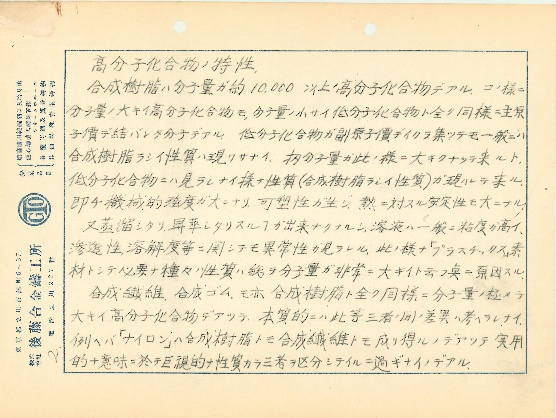 高分子化合物ノ特性.
合成樹脂ハ分子量ガ約10,000以上ノ高分子化合物デアル。コノ様ニ
分子量ノ大キイ高分子化合物モ、分子量ノ小サイ低分子化合物ト全ク同様ニ主原
子價デ結バレタ分子デアル。低分子化合物ガ副原子價デイクラ集ツテモ一般ニハ
合成樹脂ラシイ性質ハ現ワサナイ。扨分子量ガ此ノ様ニ大キクナツテ来ルト、
低分子化合物ニハ見ラレナイ様ナ性質(合成樹脂ラシイ性質)ガ現ハレテ来ル。
即チ機械的強度ガ大ニナリ、可塑性ガ生ジ、熱ニ対スル安定性モ大ニナル。
又蒸溜シタリ、昇華シタリスル事ガ出来ナクナルシ、溶液ハ一般ニ粘度ガ高ク、
滲透性、溶解度等ニ関シテモ異常性ガ見ラレル。此ノ様ナ「プラスチツクス」素
材トシテ必要ナ種々ノ性質ハ総テ分子量ガ非常ニ大キイト云フ事ニ原因スル。
合成纖維、合成ゴム、モ亦合成樹脂ト全ク同様ニ分子量ノ極メテ
大キイ高分子化合物デアツテ、本質的ニハ此等三者ノ間ノ差異ハ考ヘラレナイ。
例ヘバ「ナイロン」ハ合成樹脂トモ合成纖維トモ成リ得ルノデアツテ、実用
的ナ意味ニ於テ巨視的ナ性質カラ三者ヲ区分シテイルニ過ギナイノデアル。
GTO
後藤合金鑄工所
2